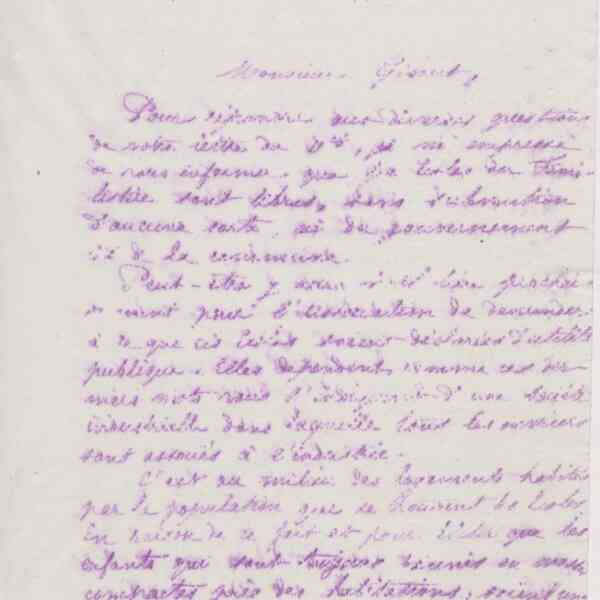 Monsieur Gissot,
Pour répondre aux diverses questions
de votre lettre du 20, je m'empresse
de vous informer que les Ecoles du Fami-
listère sont libres, sans subvention
d'aucune sorte, ni du gouvernement
ni de la commune.
Peut-être y aura-t-il lieu prochai-
nement pour l'association de demander
à ce que ces écoles soient déclarées d'utilité
publique. Elles dépendent, comme ces der-
niers mots vous l'indiquent d'une société
industrielle dans laquelle tous les ouvriers
sont associés à l'industrie.
C'est au milieu des logements habités
par la population que se trouvent les écoles
En raison de ce fait et pour éviter que les
enfants qui sont toujours réunis en masse
compactes près des habitations, soient une